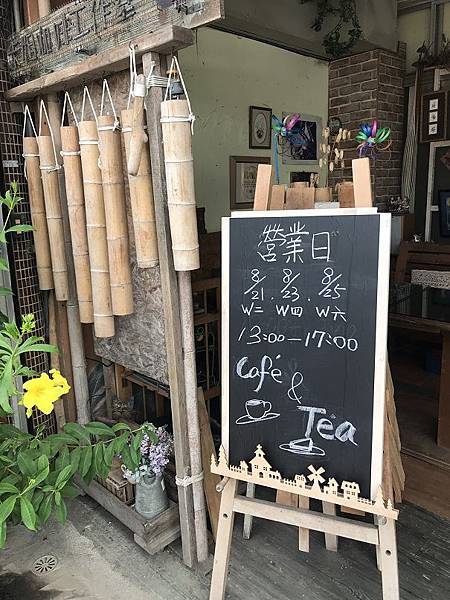 營業日
8/21. 8/23. 8/25
W二 W四 W六
13:00-17:00
Café
&
Tea